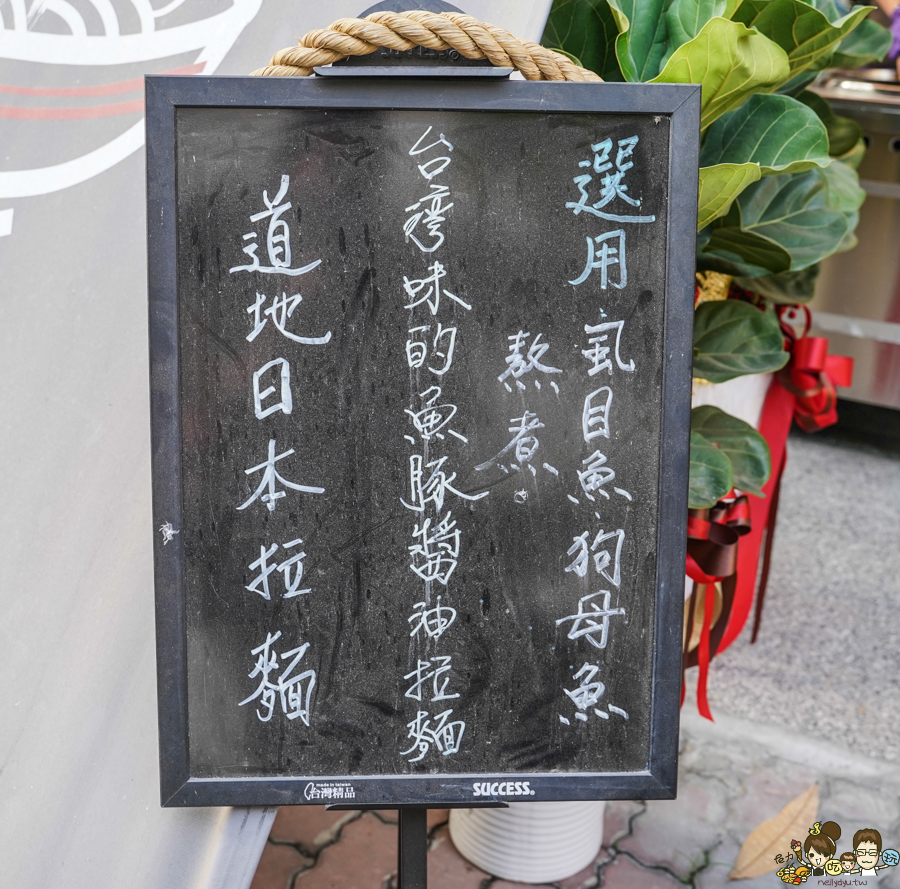 選用虱目魚、狗母魚
熬煮。
台灣味的魚豚醬油拉麵
道地日本拉麵
made in taiwan
台灣精品
SUCCESS®
吃
玩
nellydyu.tw